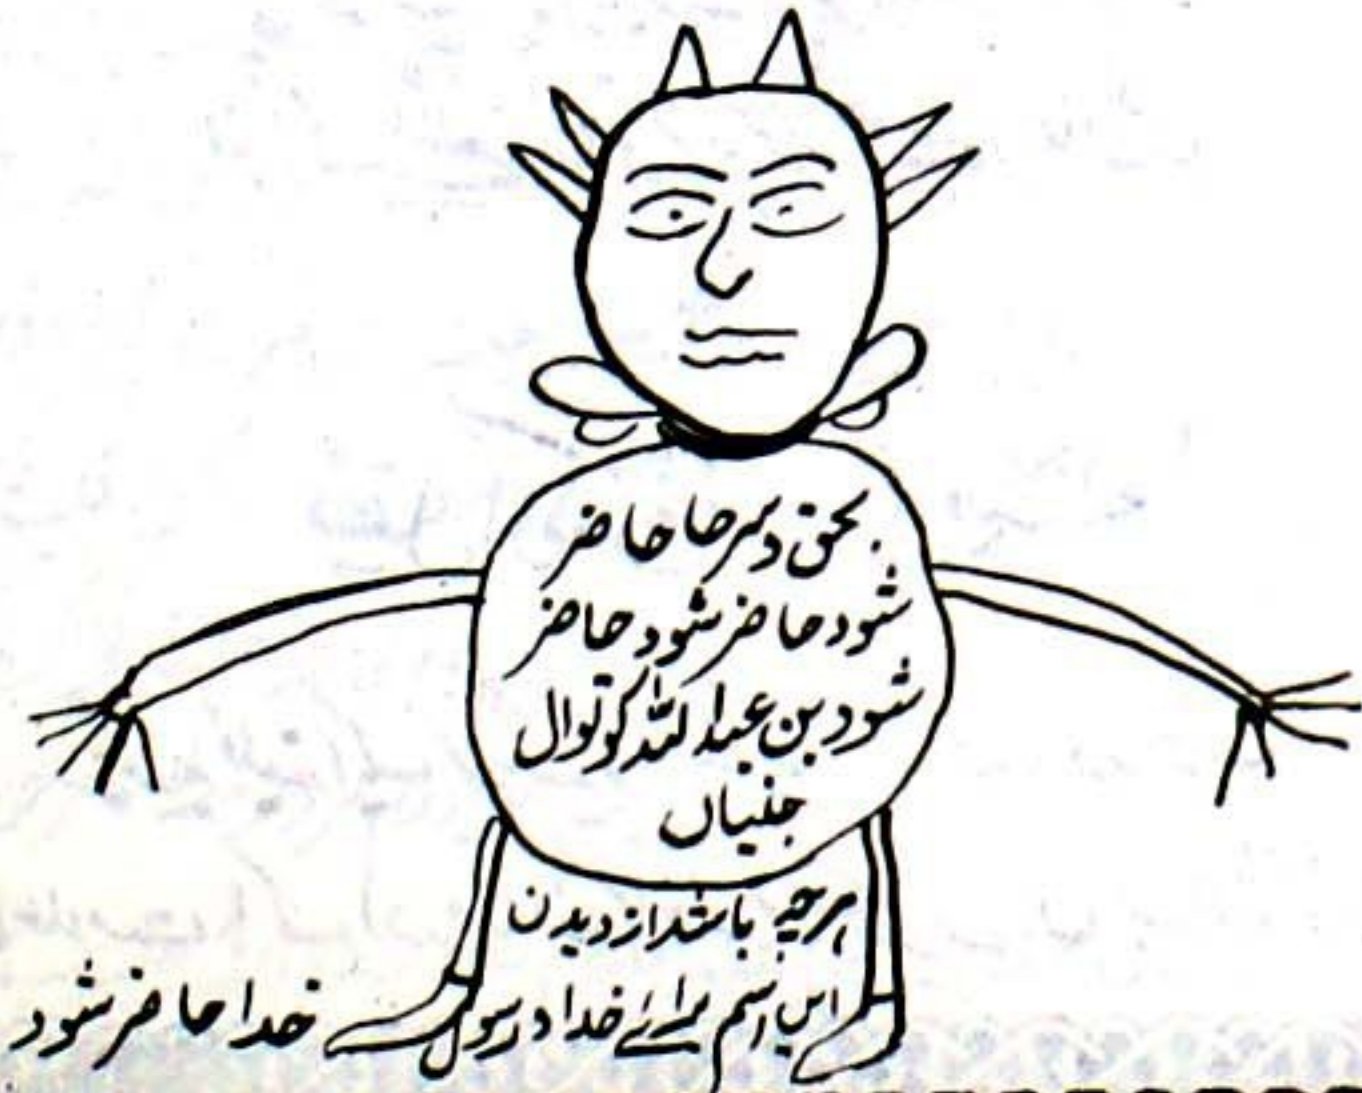 بحق دسرحا حاضر
شود حاضر شود حاضر
شود بن عبداللہ کوتوال
جنیاں
ہرچہ باشد از دیدن
این اسم برائے خدا و رسول خدا حاضر شود